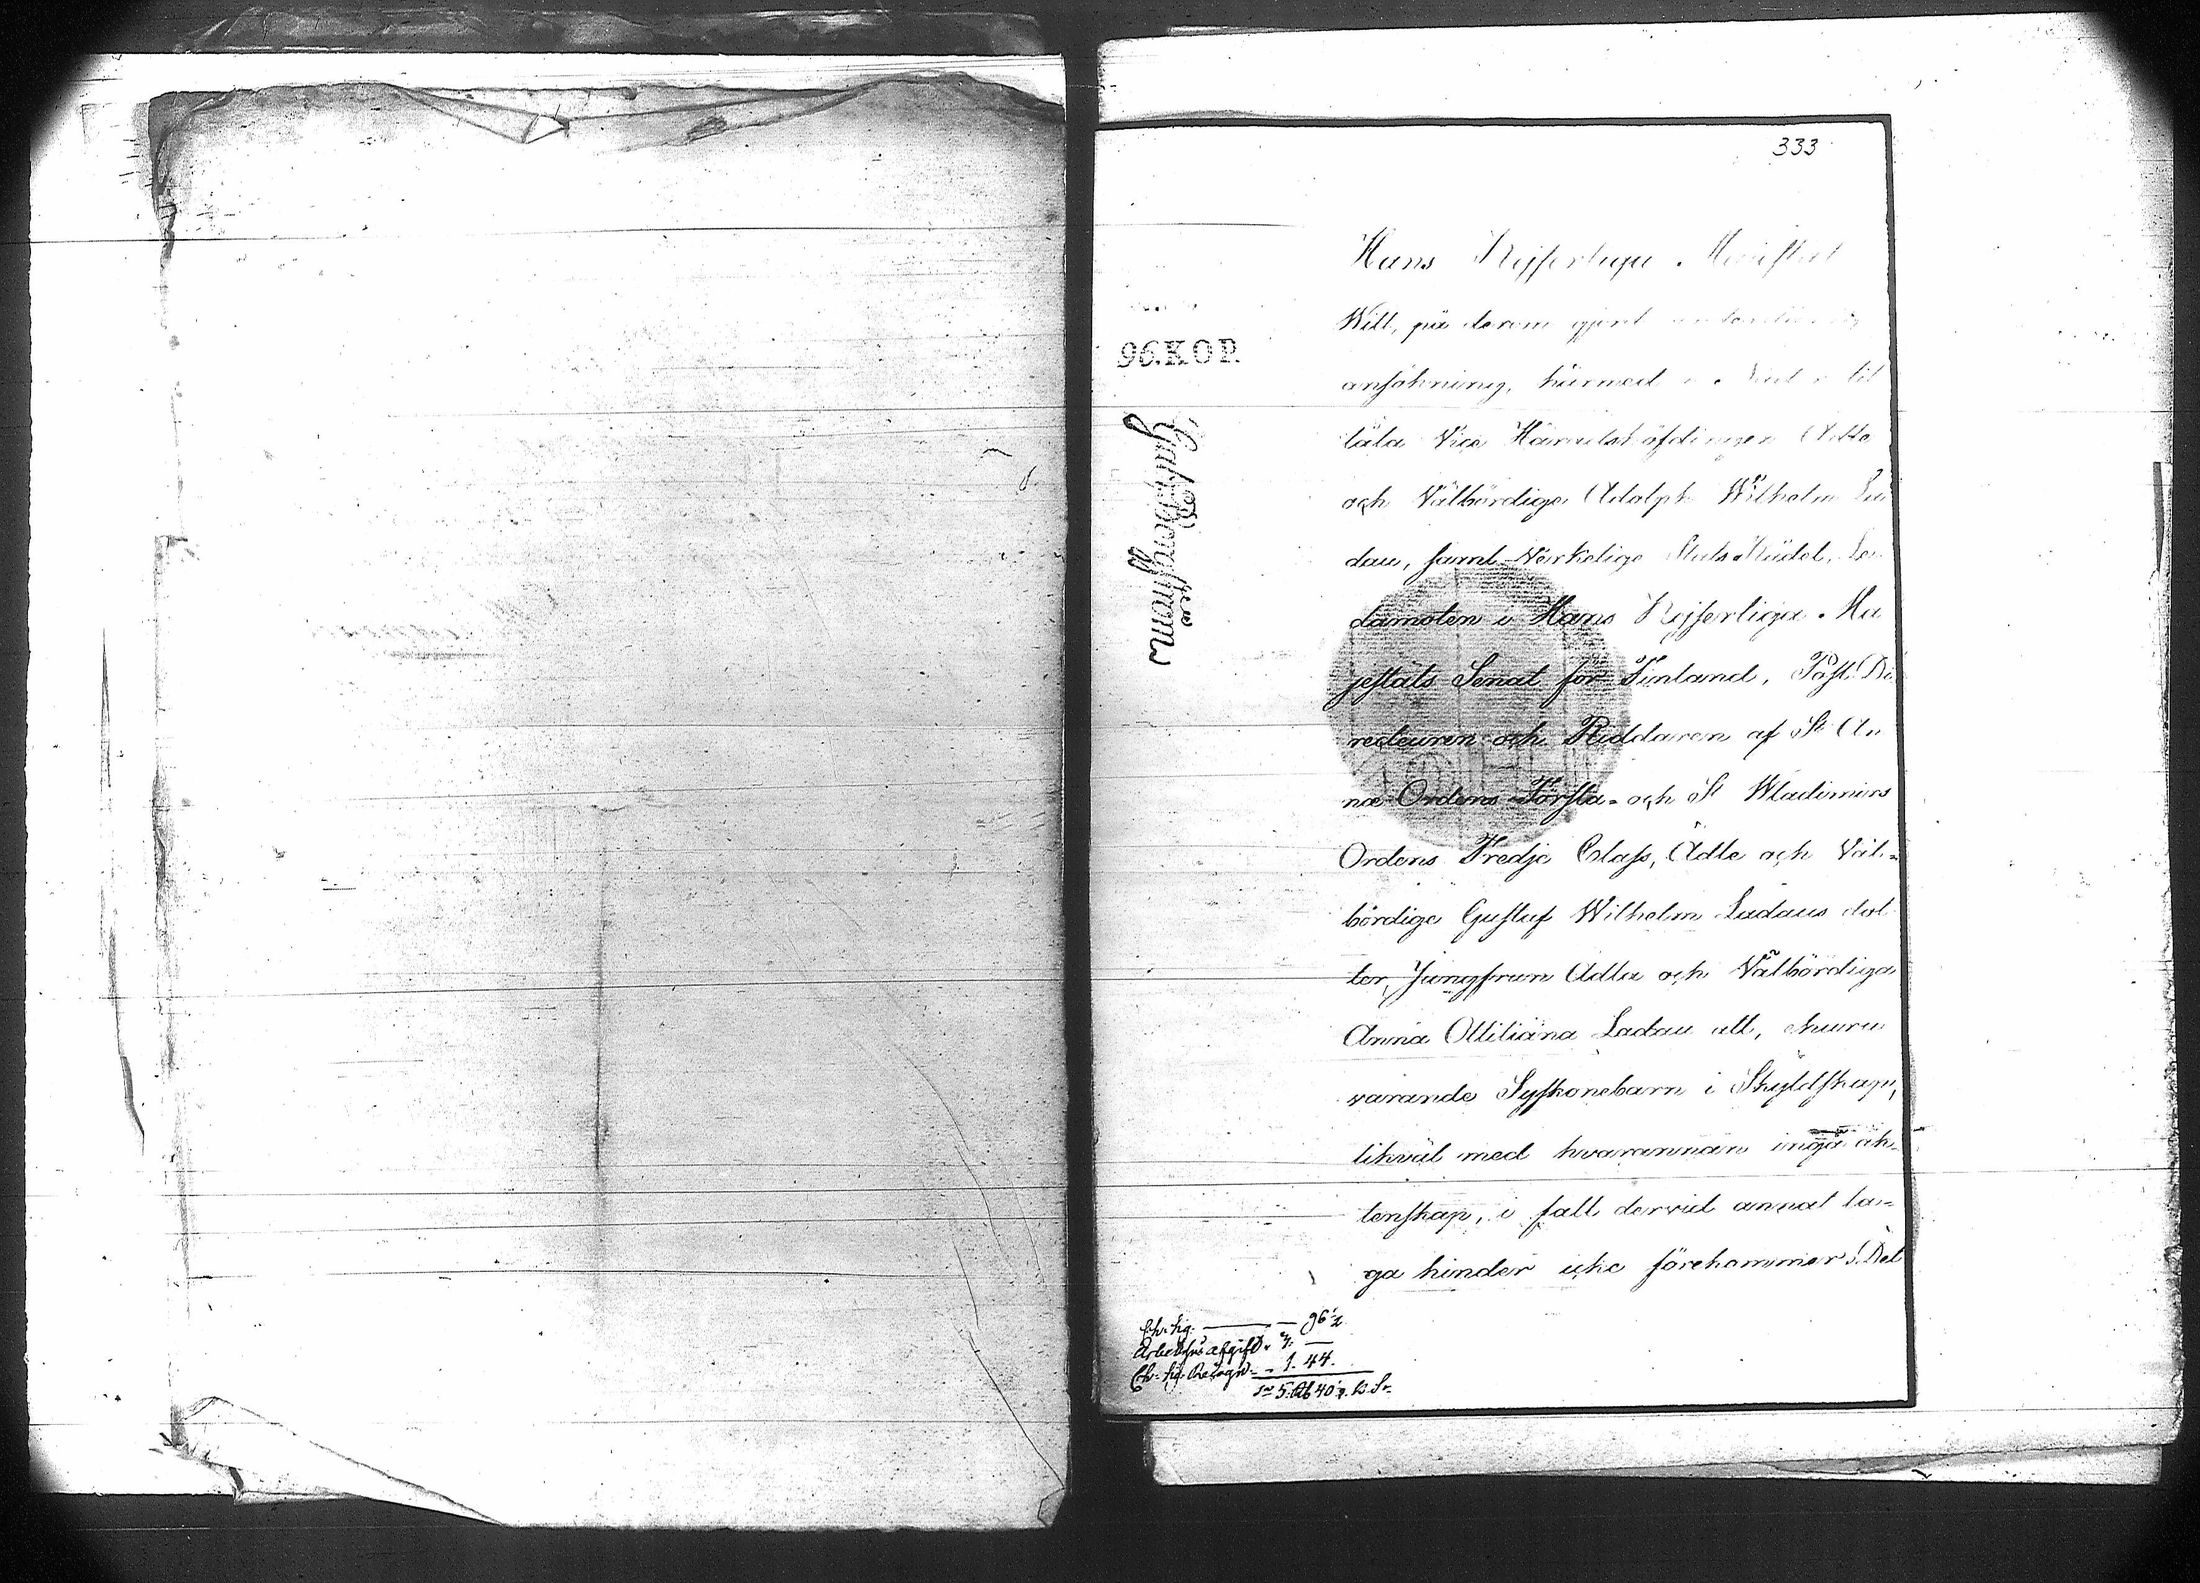 333
Hans Kejserliga Majestät
Will, på derom gjord underdånig
ansökning, härmed i Nåder til
låta Vice Häradshöfdingen Ädle
och Välbördige Adolph Wilhelm La
dau, samt Verkelige Stats Rådet, Le
damoten i Hans Kejserliga Ma
jestäts Senat för Finland, Post Di
recteuren och Riddaren af St An
næ Ordens Första- och St Wladimirs
Ordens Tredje Class, Ädle och Väl-
bördige Gustaf Wilhelm Ladaus dot
ter, Jungfrun Ädla och Välbördiga
Anna Ottiliana Ladau att, ehuru
varande Syskonebarn i Skyldskap,
likväl med hvarannan ingå äk-
tenskap, i fall dervid annat la-
ga hinder icke förekommer. Det
96.KOP.
Ch: sig: — 96
Arbetshus afgift. 3. —
Ch: sig: Recogn: - 1. 44.
5. Rb 40